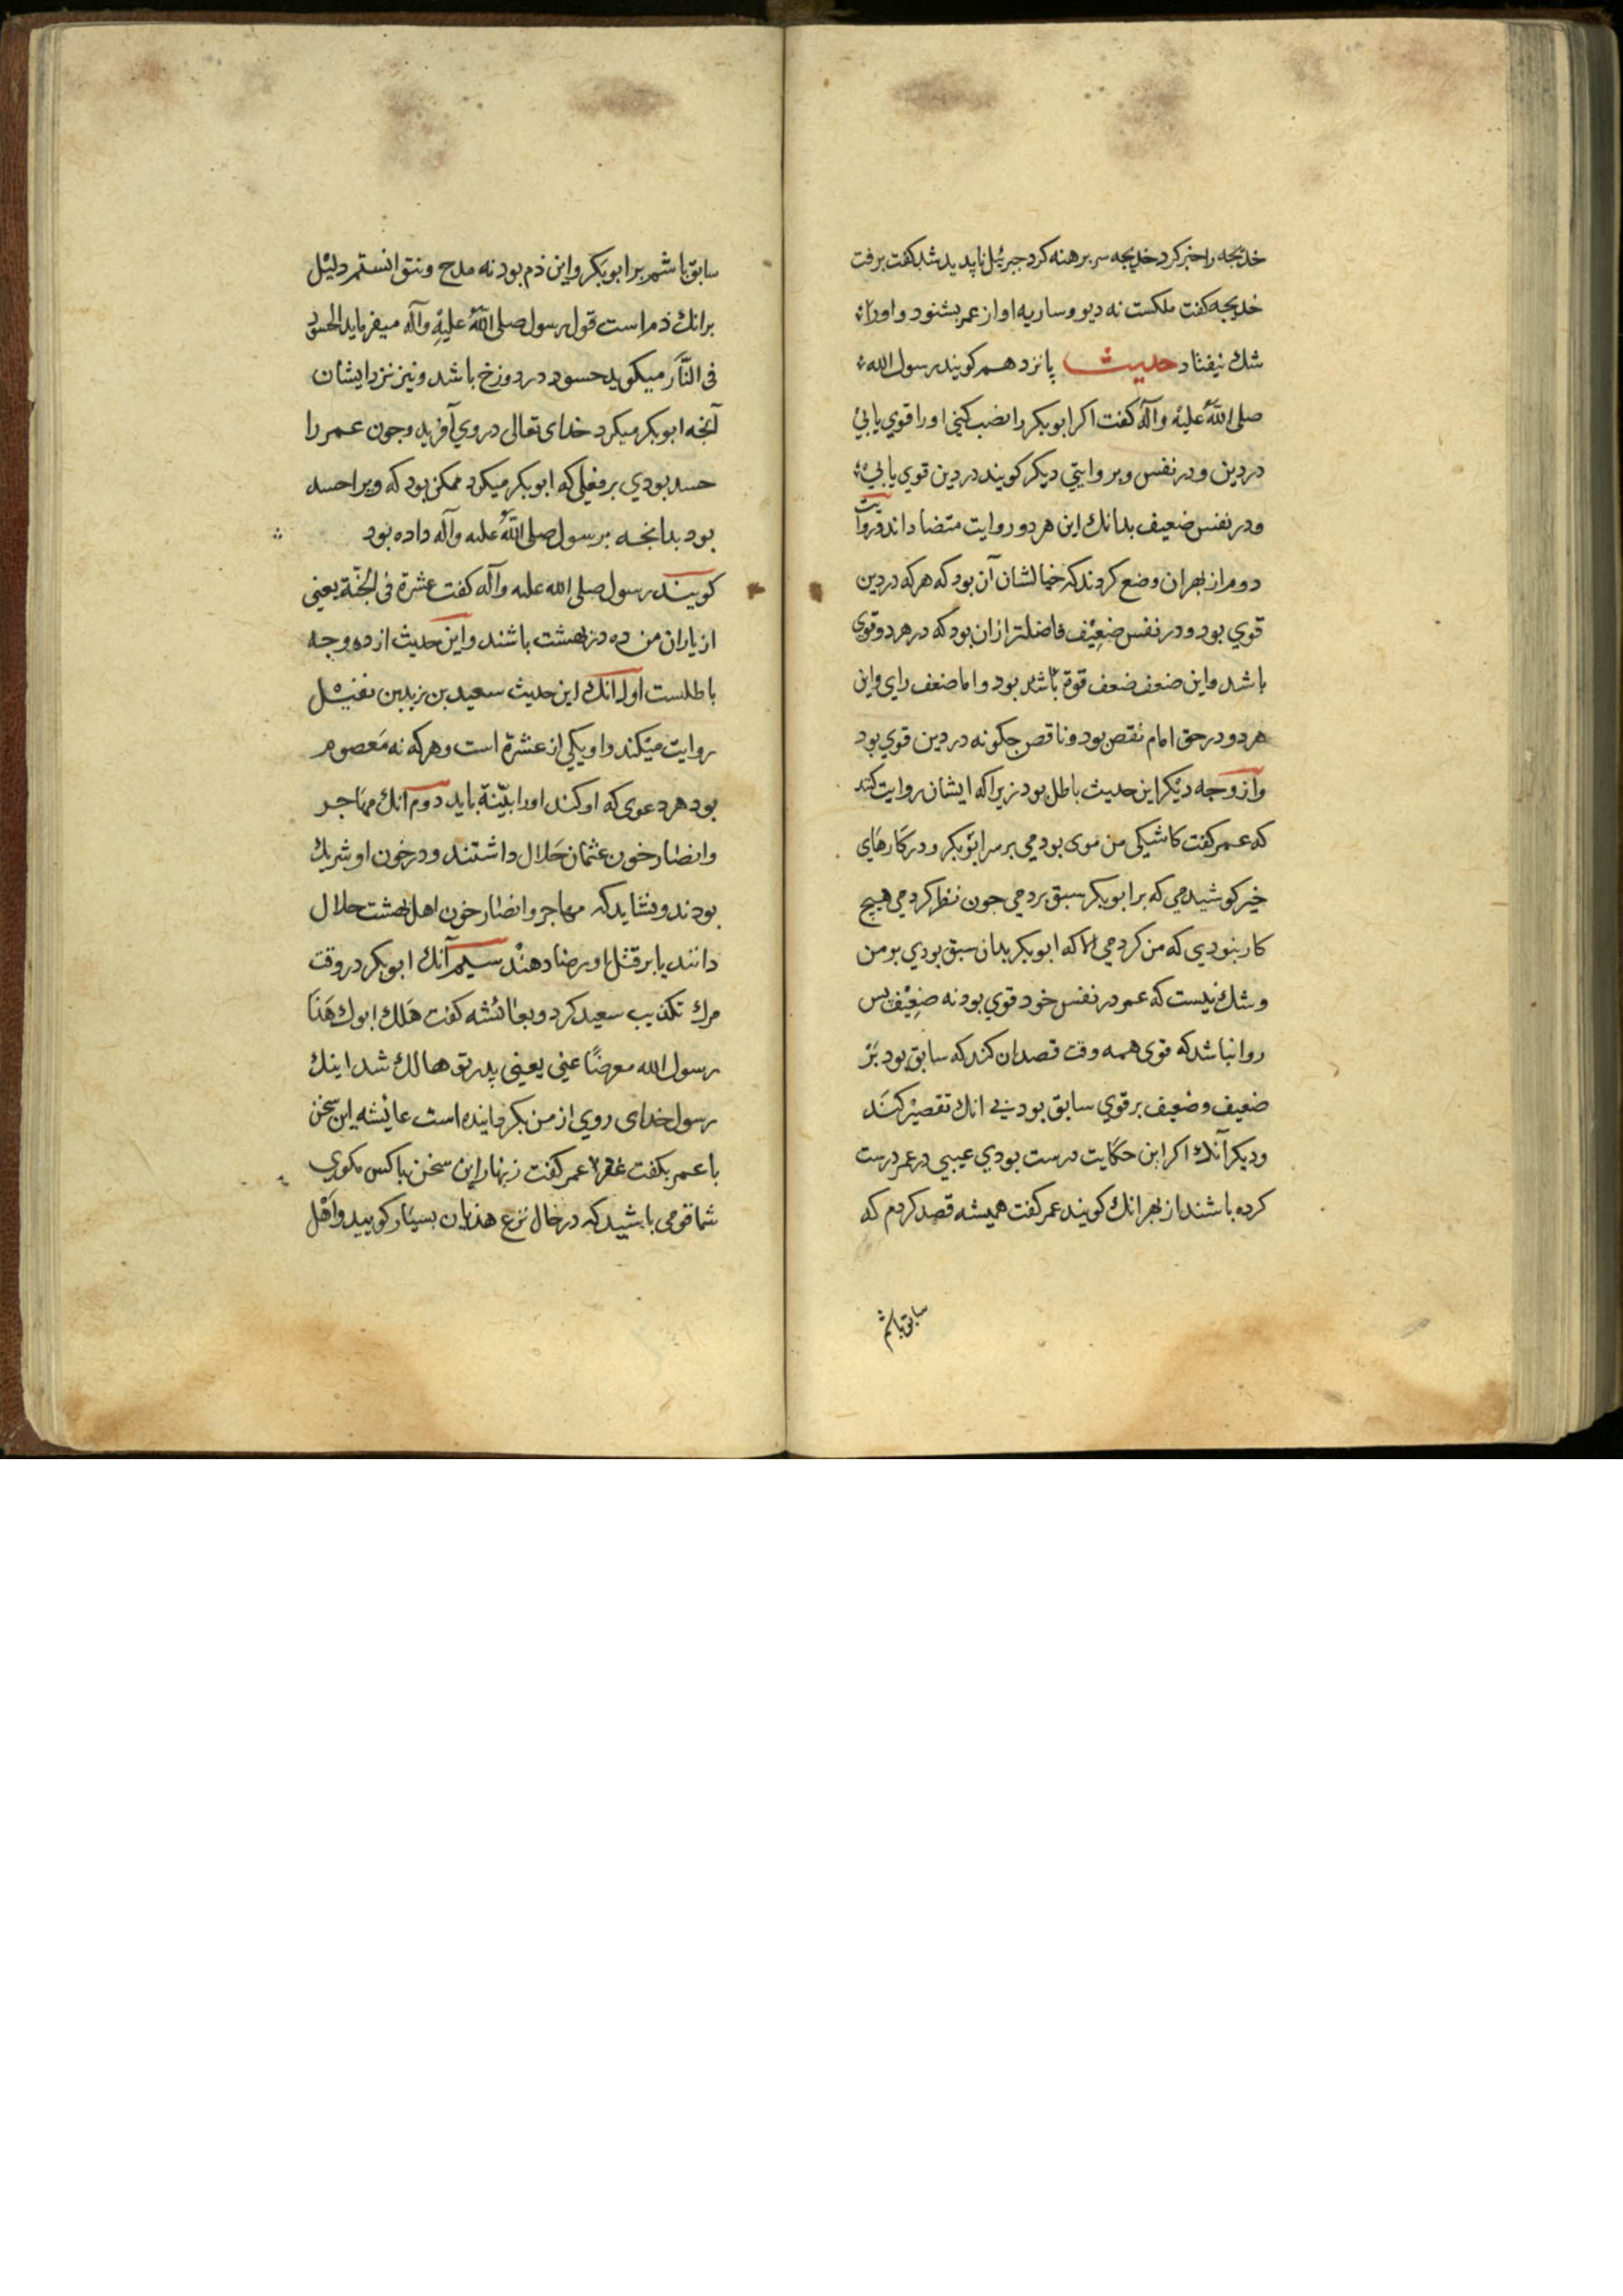 خدیجه را خبر کرد خدیجه سر برهنه کرد جبرئیل ناپدید شد گفت برفت
خدیجه گفت ملکست نه دیو و ساریه اواز عمر بشنود و اورا
شک نیفتاد حدیث پانزدهم کویند رسول الله
صلی الله علیه وآله گفت اکر ابوبکر را نصب کنی اورا قوی یابی
در دین و در نفس و بر وایتی دیکر کویند در دین قوی یابی
و در نفس ضعیف بدانک این هر دو روایت متضاداند و روایت
دوم از بهر ان وضع کردند که خیالشان آن بود که هر که در دین
قوی بود و در نفس ضعیف فاضلتر از ان بود که در هر دو قوی
باشد و این ضعف ضعف قوم باشد بود و اما ضعف رای و این
هر دو در حق امام نقص بود و ناقص جکونه در دین قوی بود
و از وجه دیکر این حدیث باطل بود زیرا که ایشان روایت کنند
که عمر کفت کاشیکی من موی بودمی بر سر ابوبکر و در کارهای
خیر کوشیدمی که بر ابوبکر سبق بردمی جون نظر کردمی هیچ
کار نبودی که من کردمی الا که ابوبکر بدان سبق بودی بر من
و شک نیست که عمر در نفس خود قوی بود نه ضعیف بس
روا نباشد که قوی همه وقت قصد ان کند که سابق بود بر
ضعیف و ضعیف بر قوی سابق بود بی انک تقصیر کند
و دیکر آنک اکر این حکایت درست بودی عیبی در عمر درست
کرده باشند از بهر انک کویند عمر کفت همیشه قصد کردم که
سابق باشم
سابق باشم بر ابوبکر و این ذم بود نه مدح و نتوانستم دلیل
برانک ذم است قول رسول صلی الله علیه وآله میفرماید الحسود
فی النار میکوید حسود در دوزخ باشد و نیز نزد ایشان
آنچه ابوبکر میکرد خدای تعالی در وی آفرید و جون عمر را
حسد بودی بر فعلی که ابوبکر میکرد ممکن بود که ویرا حسد
بود بدانچه برسول صلی الله علیه وآله داده بود
کویند رسول صلی الله علیه وآله کفت عشرة فی الجنة یعنی
از یاران من ده در بهشت باشند و این حدیث از ده وجه
باطلست اول انک این حدیث سعید بن زید بن نفیل
روایت میکند و او یکی از عشرة است و هر که نه معصوم
بود هر دعوی که او کند اورا بیّنة باید دوم آنک مهاجر
وانصار خون عثمان حلال داشتند و در خون او شریک
بودند و نشاید که مهاجر وانصار خون اهل بهشت حلال
دانند یا بر قتل او رضا دهند سیم آنک ابوبکر در وقت
مرک تکذیب سعید کرد و بعائشه کفت هلك ابوك هذا
رسول الله معرضًا عنی یعنی پدر تو هالک شد اینک
رسول خدای روی از من بکردانیده است عائشه این سخن
با عمر بکفت عمر کفت زنهار این سخن با کس مکوی
شما قومی باشید که در حال نزع هذیان بسیار کویید و اهل